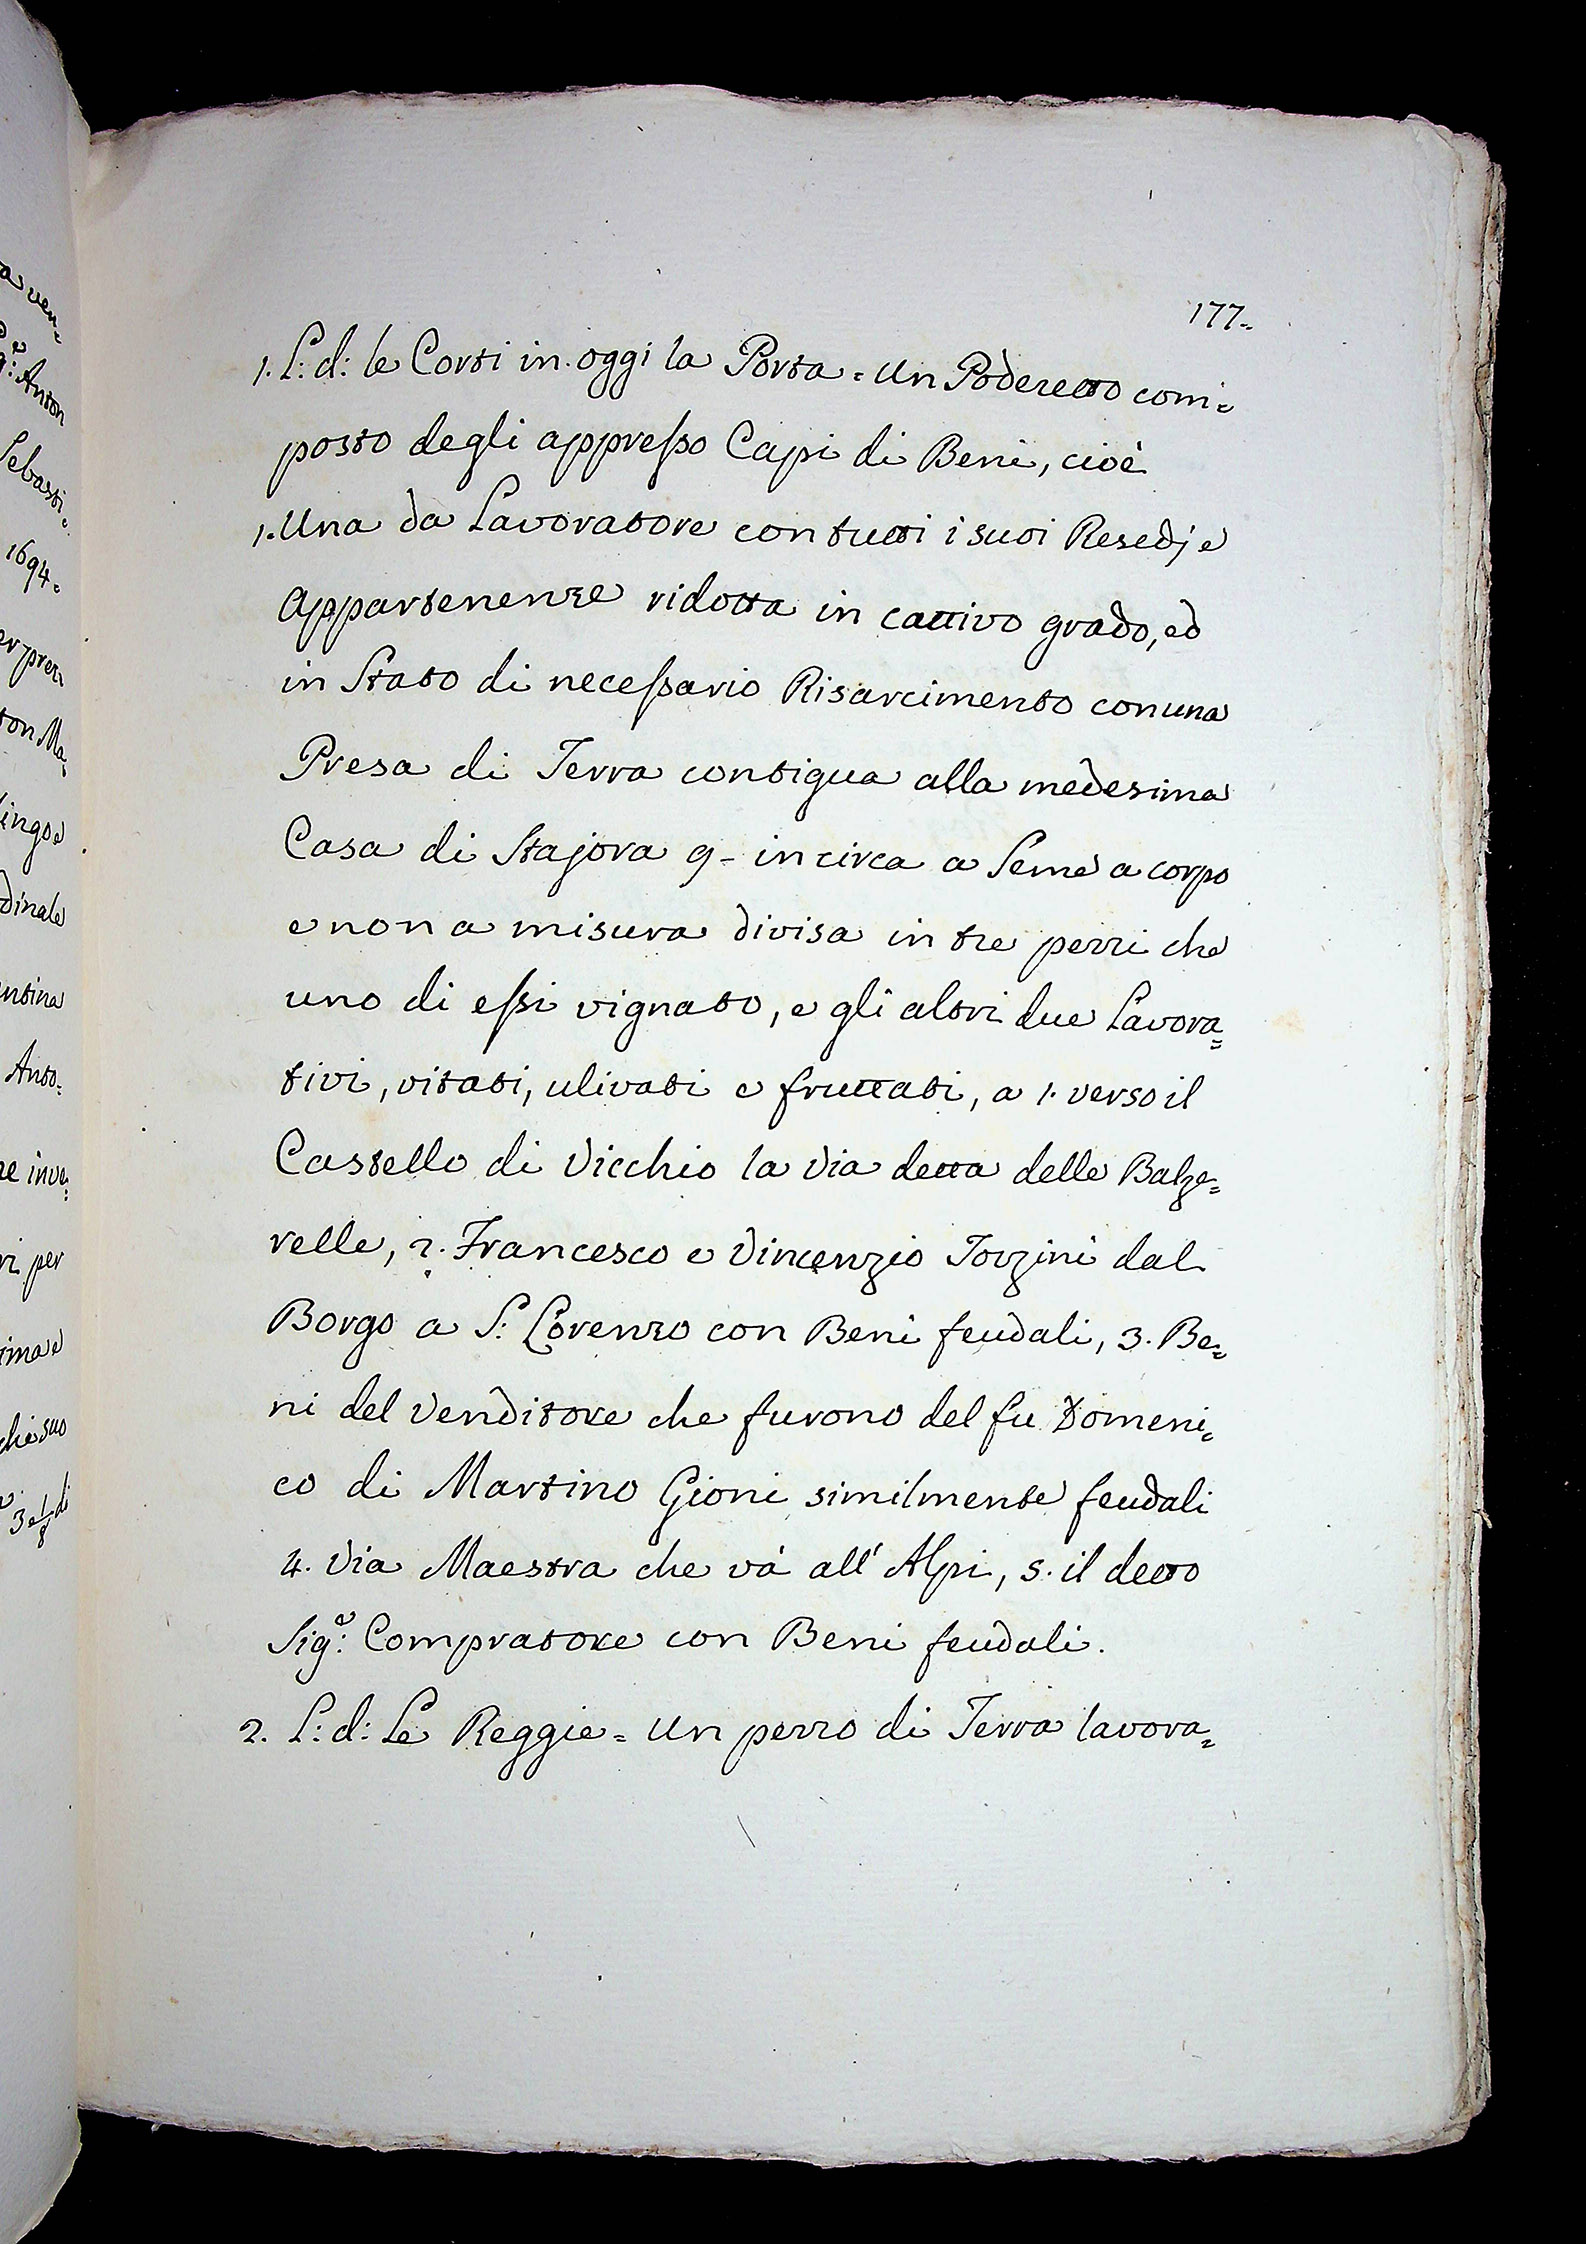 177.
1. L: d: le Corti in oggi la Porta = Un Poderetto com=
posto degli appresso Capi di Beni, cioè
1. Una da Lavoratore con tutti i suoi Resedj e
Appartenenze ridotta in cattivo grado, ed
in Stato di necessario Risarcimento con una
Presa di Terra contigua alla medesima
Casa di Stajora 9 - in circa a Seme a corpo
e non a misura divisa in tre pezzi che
uno di essi vignato, e gli altri due Lavora=
tivi, vitati, ulivati e fruttati, a 1. verso il
Castello di Vicchio la Via detta delle Balze=
relle, 2. Francesco e Vincenzio Torzini dal
Borgo a S: Lorenzo con Beni feudali, 3. Be=
ni del Venditore che furono del fu Domeni=
co di Martino Gioni similmente feudali
4. Via Maestra che và all' Alpi, 5. il detto
Sig.e: Compratore con Beni feudali.
2. L: d: Le Reggie = Un pezzo di Terra lavora=